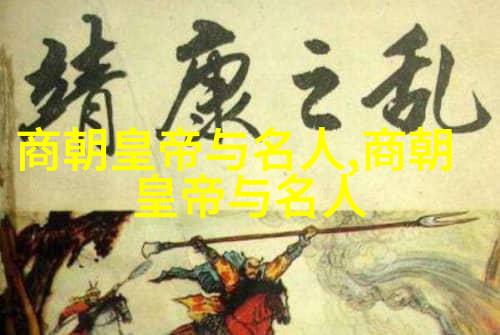 靖康之乱
商朝皇帝与名人,商朝
皇帝与名人